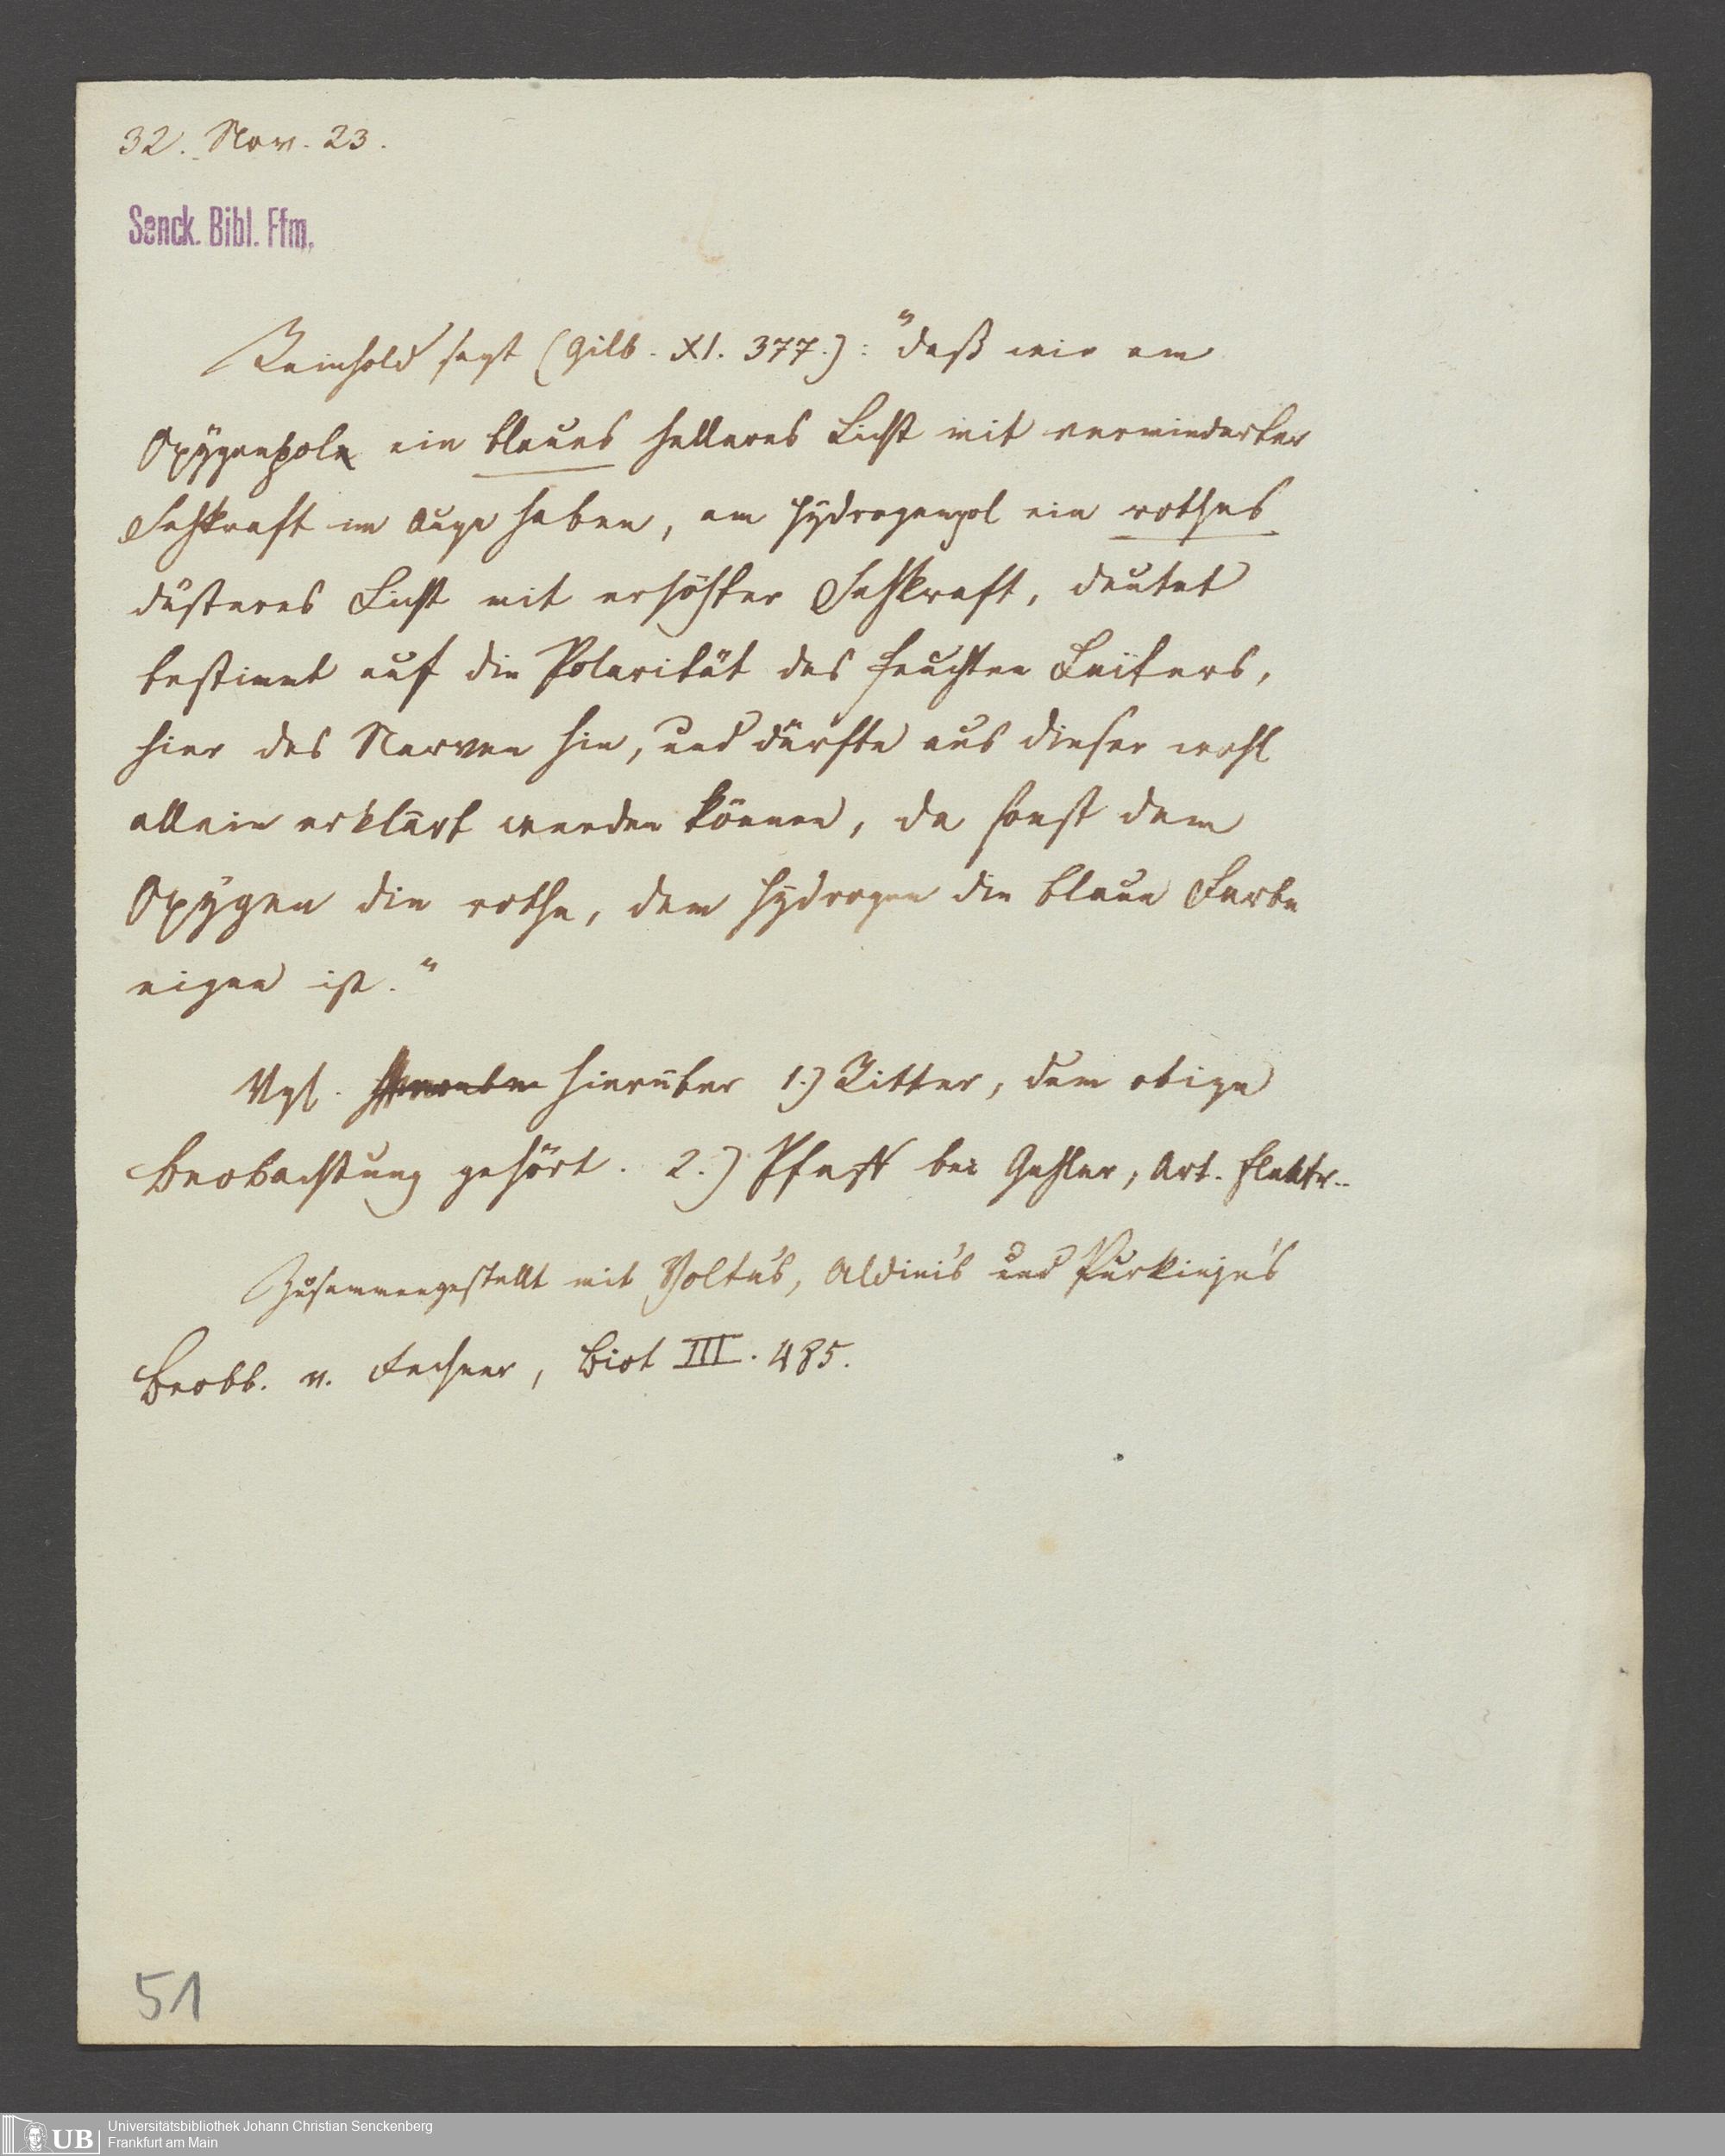 32. Nov. 23.
Senck. Bibl. Ffm.
Reinhold sagt (Gilb. XI. 377.): "daß wir am
Oxÿgenpole ein blaues helleres Licht mit verminderter
Sehkraft im Auge haben, am Hÿdrogenpol ein rothes
düsteres Licht mit erhöhter Sehkraft, deutet
bestimmt auf die Polarität des feuchten Leiters,
hier des Nerven hin, und dürfte aus dieser wohl
allein erklärt werden können, da sonst dem
Oxÿgen die rothe, dem Hÿdrogen die blaue Farbe
eigen ist."
Vgl. hierüber 1.) Ritter, dem obige
Beobachtung gehört. 2.) Pfaff bei Gehler, Art. Elektr..
Zusammengestellt mit Volta's, Aldini's und Purkinje's
Beobb. v. Fechner, Biot III. 485.
51
UB Universitätsbibliothek Johann Christian Senckenberg
Frankfurt am Main